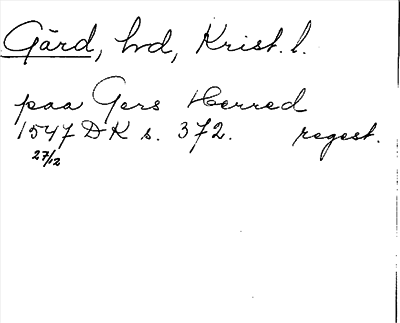 Gärd, hd, Krist. l.
paa Gers Herred
1547 DK s. 372. regest.
27/12